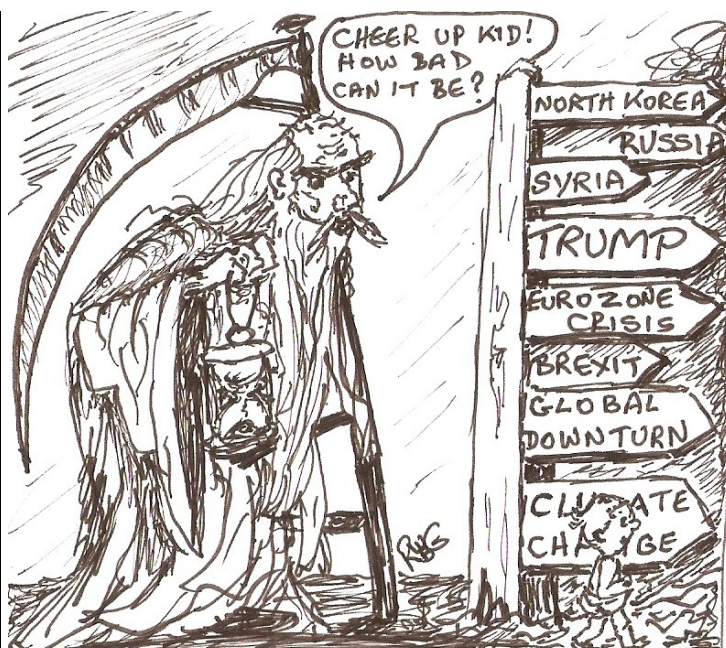 CHEER UP KID!
HOW BAD
CAN IT BE?
NORTH KOREA
RUSSIA
SYRIA
TRUMP
EUROZONE
CRISIS
BREXIT
GLOBAL
DOWNTURN
CLIMATE
CHANGE